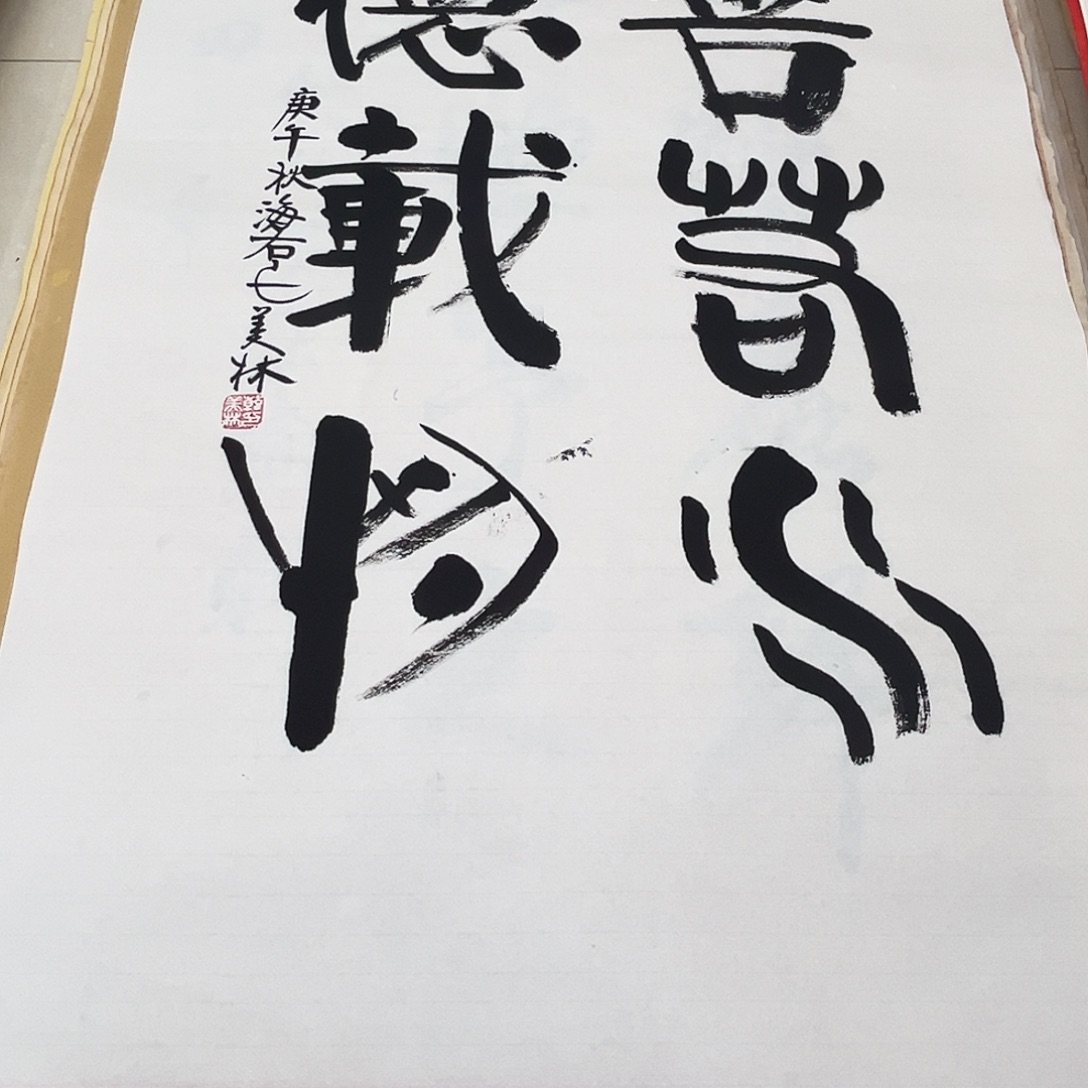 善若水
德載物
庚午秋海右美林